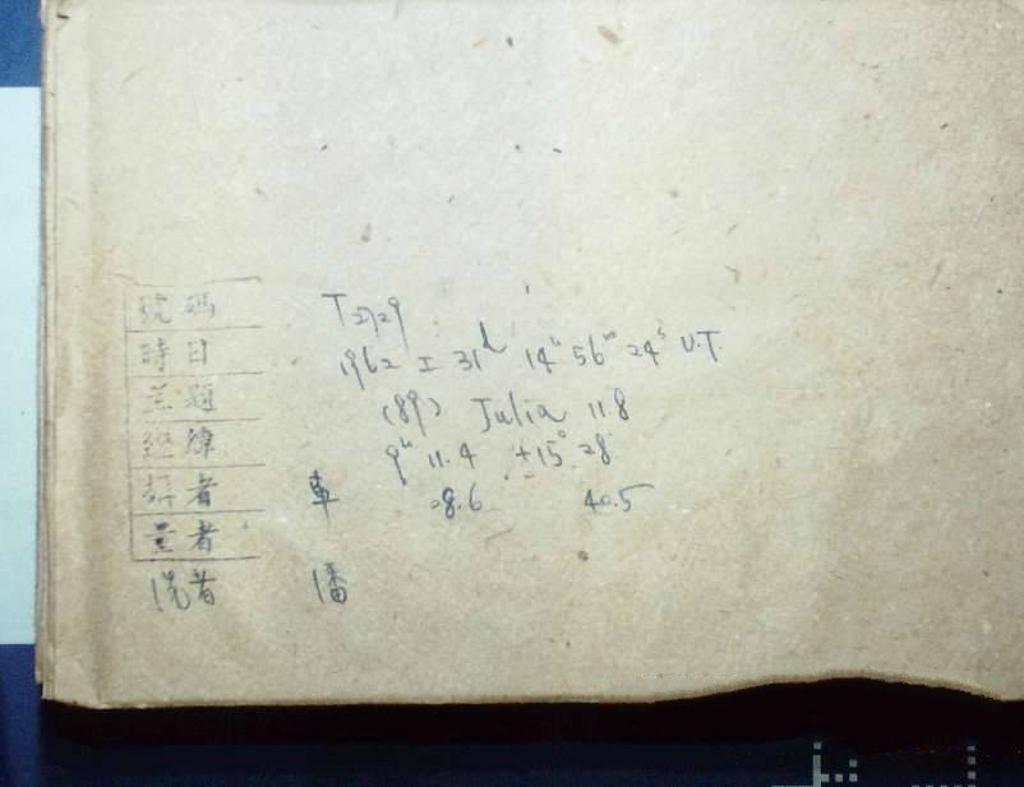 號碼 T2729
時日 1962 I 31d 14h 56m 24s U.T.
星題 (89) Julia 11.8
經緯 9h 11.4 +15° 28'
者 車 08.6 40.5
量者
洗者 潘